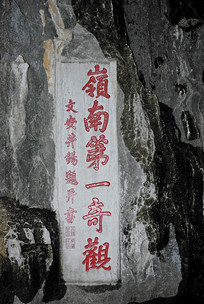 嶺南第一奇觀
文安井鍚題并書